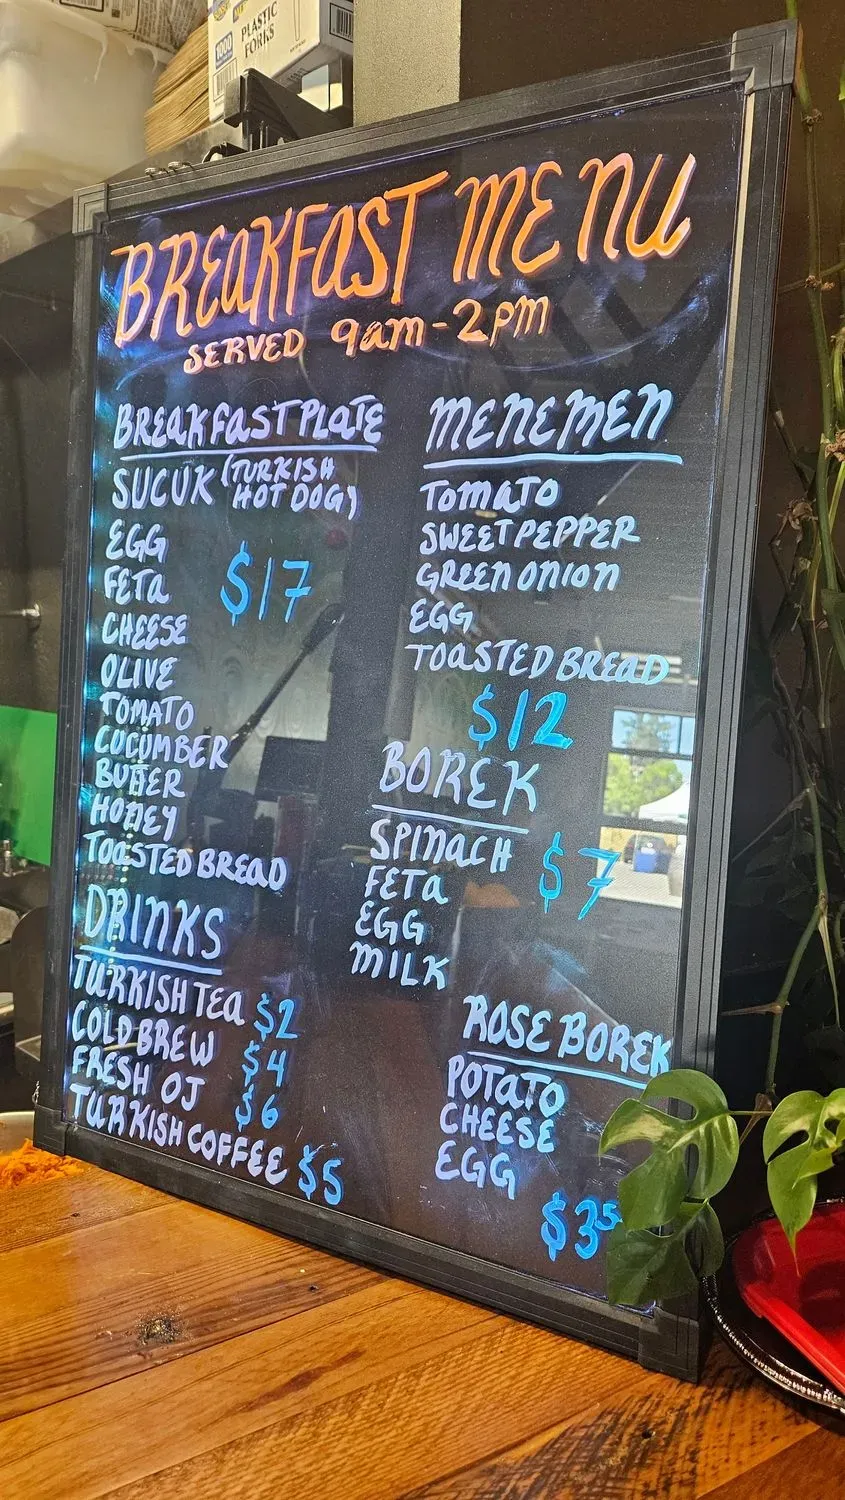 1000
PLASTIC
FORKS
BREAKFAST MENU
SERVED 9am-2pm
BREAKFAST PLATE
SUCUK (TURKISH
HOT DOG)
EGG
FETA
$17
CHEESE
OLIVE
TOMATO
CUCUMBER
BUTTER
HONEY
TOASTED BREAD
DRINKS
TURKISH TEA $2
COLD BREW $4
FRESH OJ $6
TURKISH COFFEE $5
MENEMEN
TOMATO
SWEET PEPPER
GREEN ONION
EGG
TOASTED BREAD
$12
BOREK
SPINACH $7
FETA
EGG
MILK
ROSE BOREK
POTATO
CHEESE
EGG